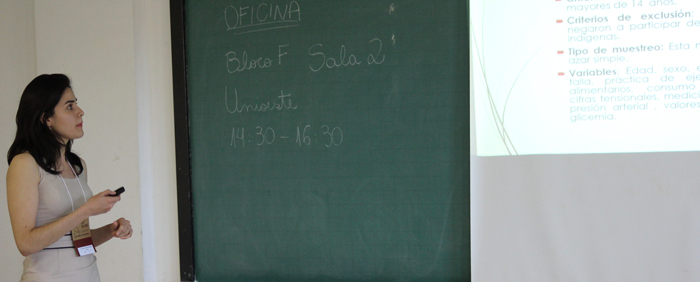 OFICINA
Bloco F Sala 2
Unioeste
14:30 - 16:30
mayores de 14 años
Criterios de exclusión:
negaron a participar de
indígenas.
Tipo de muestreo: Esta
azar simple.
Variables: Edad, sexo,
talla, práctica de
alimentarios, consumo
cifras tensionales, medic
presión arterial , valores
glicemia.